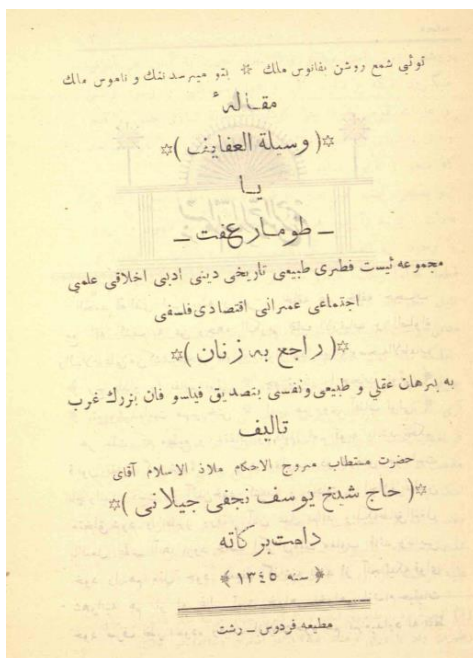 توئی شمع روشن بفانوس ملك ※ بتو میرسد ننك و ناموس ملك
مقاله ٔ
✡( وسیلة العفایف )✡
یا
ـ طومار عفت ـ
مجموعه ئیست فطری طبیعی تاریخی دینی ادبی اخلاقی علمی
اجتماعی عمرانی اقتصادی فلسفی
✡( راجع به زنان )✡
به برهان عقلی و طبیعی ونفسی بتصدیق فیلسو فان بزرك غرب
تالیف
حضرت مستطاب مروج الاحکام ملاذ الاسلام آقای
✡( حاج شیخ یوسف نجفی جیلانی )✡
دامت برکاته
﴿ سنه ١٣٤٥ ﴾
مطیعه فردوس ـ رشت